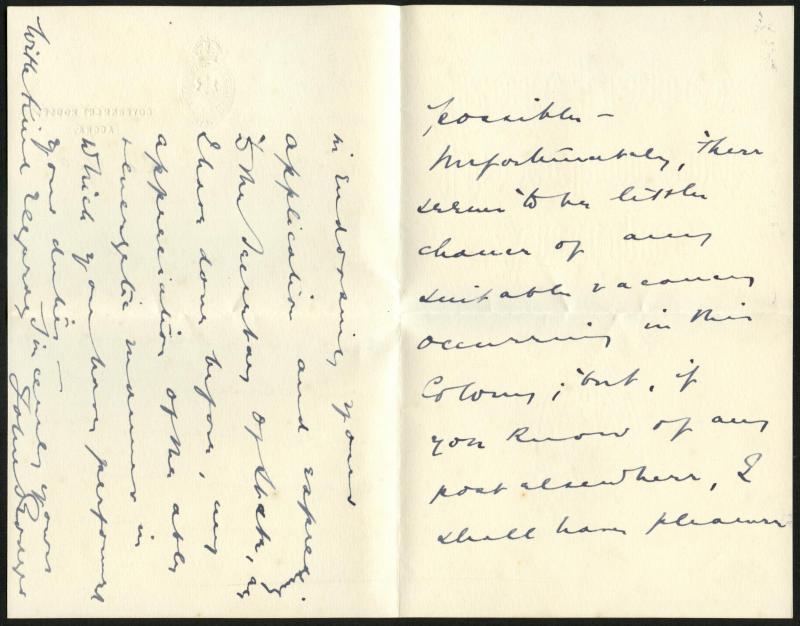 possible –
Unfortunately, there
seems to be little
chance of any
suitable vacancy
occurring in this
Colony; but, if
you know of any
post elsewhere, I
shall have pleasure
in endorsing your
application and expressing
to the Secretary of State, as
I have done before, my
appreciation of the able
& energetic manner in
which you have performed
your duties –
With kind regards, Sincerely yours
John
GOVERNMENT HOUSE,
ACCRA.